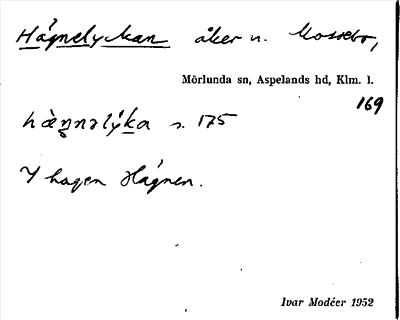 Hägnelyckan åker n. Mossebo,
Mörlunda sn, Aspelands hd, Klm. l.
169
s. 175
I hagen Hägnen.
Ivar Modéer 1952